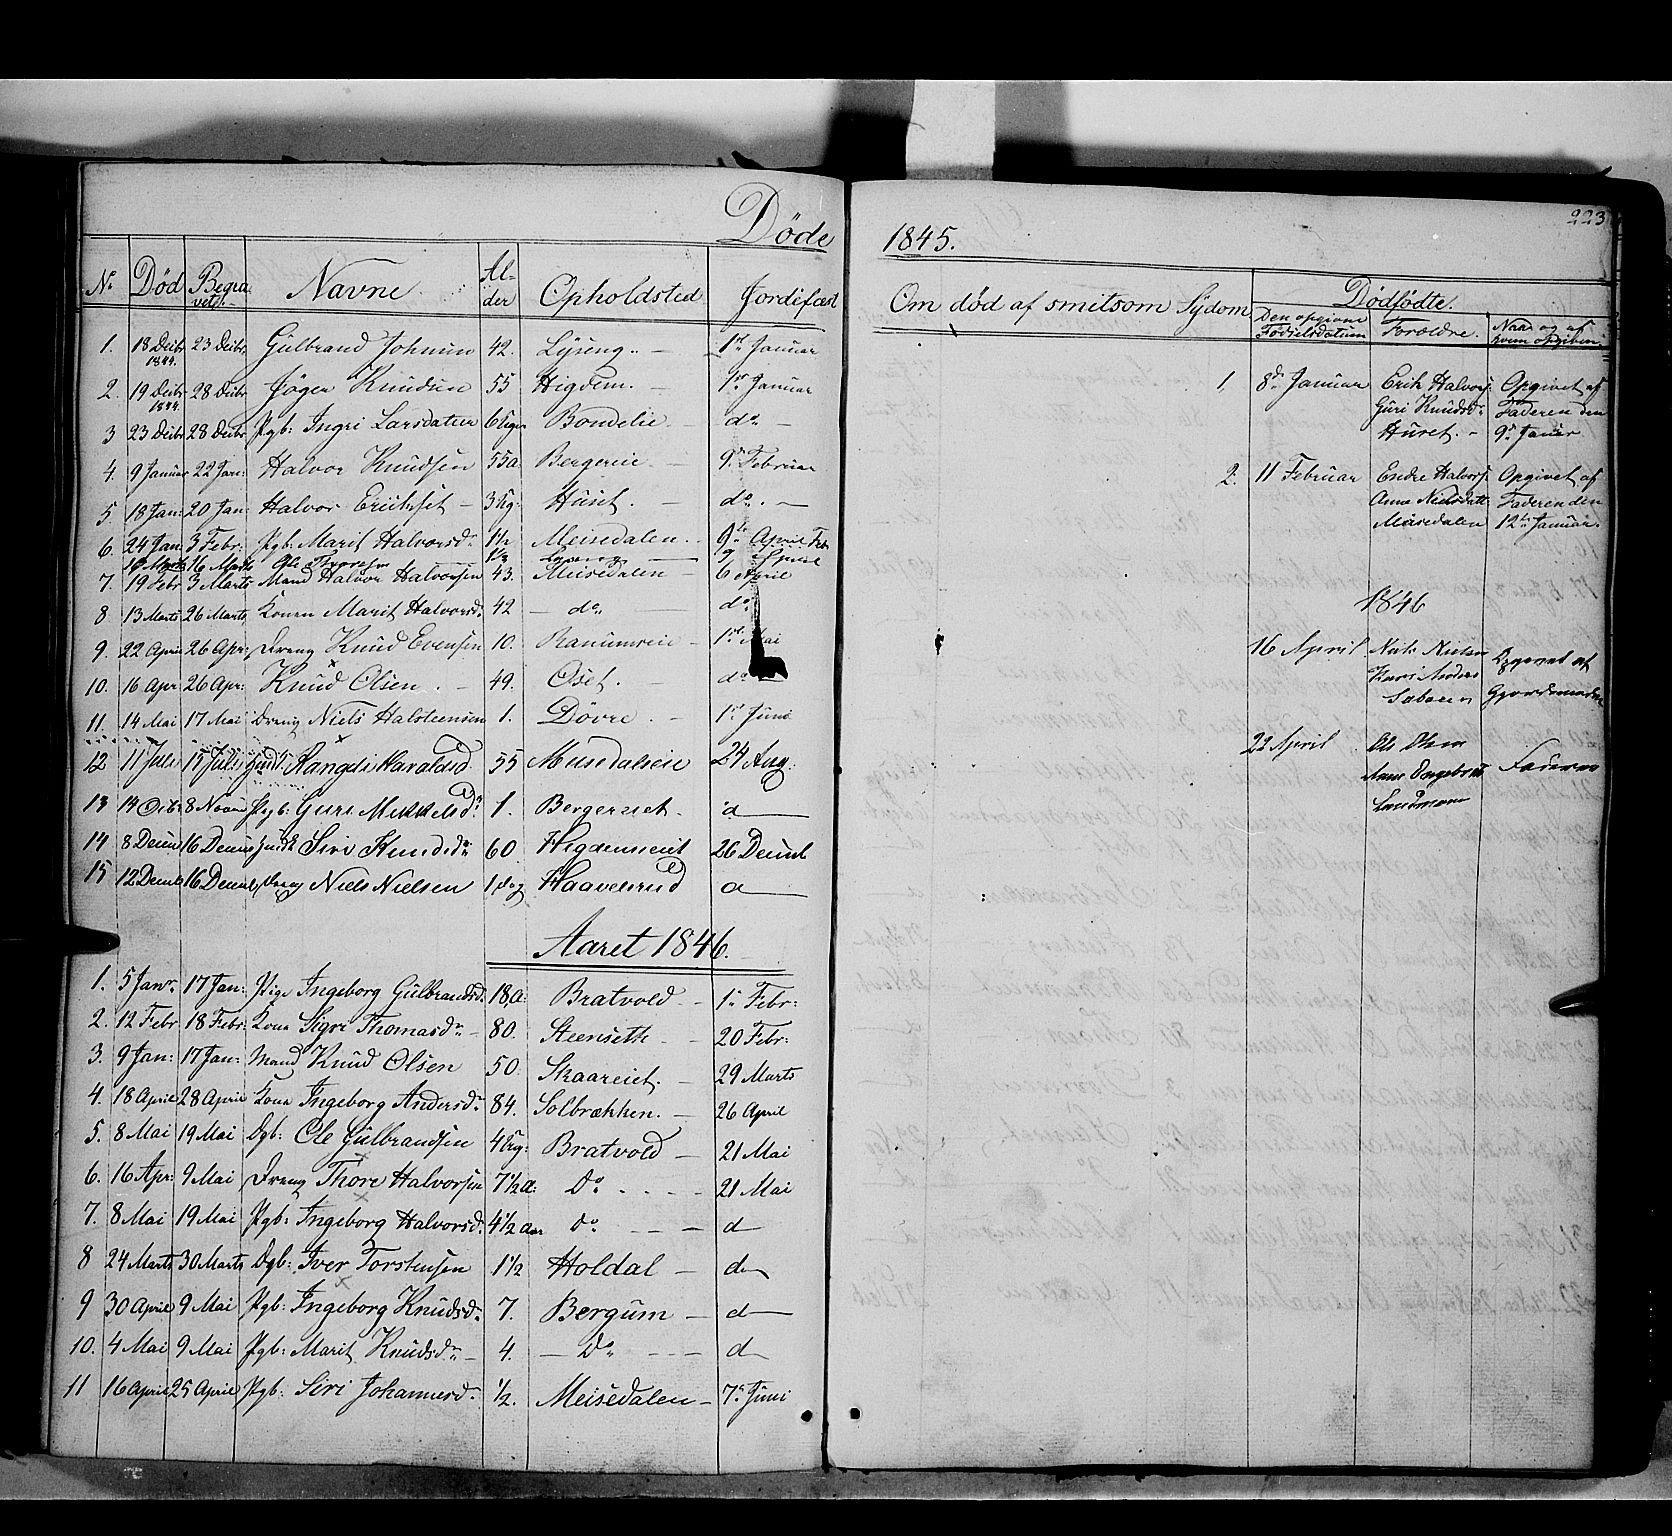 Døde
№ Død Begravet Navne Alder Opholdsted Jordifæst
1. 18 Decbr 1844. 23 Decbr Gulbrand Johnsen 42. Ljung. 1ste Januar
2. 19 Decbr 1844. 28 Decbr Jøger Knudsen 55 Higdem. 1ste Januar
3 23 Decbr 28 Decbr Pgb: Ingri Larsdatter 6 Uger Bondelie do
4. 9 Januar 22 Jan: Halvor Knudsen 55 a Bergereie 9de Februar
5 18 Jan: 20 Jan: Halvor Erichs 3 Ug: Huset. do.
6. 24 Jan 3 Febr. Pgb: Marit Halvorsdr 1½ Meisedalen. 9de April
10 Marts 16 Marts Ole 9 April
7. 19 Febr 3 Marts Mand Halvor Halvorsen 43. Meisedalen 6 April
8 13 Marts 26 Marts Konen Marit Halvorsdr 42 do. do
9. 22 April 26 Apr: Dreng Knud Evensen 10. Ranumseie 1ste Mai
10. 16 Apr 26 Apr: Knud Olsen. 49. Oset. do
11. 14 Mai 17 Mai Dreng Niels Halsteensen 1. Dövre. 1ste Juni
12 11 Juli 15 Juli Rangdi Haraldsd 55 Musedalseie 24 Aug.
13 14 Octb: 8 Novem Pgb: Guri Mikkelsdr 1. Bergerseiet. d
14 8 Decem 16 Decem Siri Knudsdr 60 Higdemseiet 26 Decemb
15 12 Decemb 16 Decemb Dreng Niels Nielsen 1 dag Haavelsrud d
Aaret 1846.
1. 5 Janr. 17 Jan: Pige Ingeborg Gulbrandsd. 18 a: Bratvold 1ste Febr:
2. 12 Febr 18 Febr: Kone Sigri Thomasdr 80. Steensetb 20 Febr:
3. 9 Jan: 17 Jan: Mand Knud Olsen 50. Skaareiet. 29 Marts
4. 18 April 28 April Kone Ingeborg Andersdr 84. Solbrækken. 26 April
5. 8 Mai 19 Mai Dgb: Ole Gulbrandsen 4 Ug: Bratvold 21 Mai
6. 16 Apr: 9 Mai Dreng Thore Halvorsen 7½ a: Do. 21 Mai
7. 8 Mai 19 Mai Pgb: Ingeborg Halvorsdr 4½ Aar do d
8 24 Marts 30 Marts Dgb: Iver Torstensen 1½ Holdal d
9 30 April 9 Mai Pgb: Ingeborg Knudsdr 7. Bergum d
10. 4 Mai 9 Mai Pgb: Marit Knudsdr 4. Do d
11 16 April 25 April Pgb: Siri Johannesd. ½. Meisedalen 7de Juni
223
1845.
Om död af smitsom Sÿdom Dødfødte.
Den opgivne Fødselsdatum Forældre. Naar og af hvem opgiven.
1. 8de Januar Erik Halvors. Opgivet af
Guri Knudsdr Faderen den
Huset. 9de Januar
2. 11 Februar Endre Halvors. Opgivet af
Anne Nielsdatt Faderen den
Meisedalen 12te Januar.
1846
16 April Niels Nielsen Opgivet af
Kari Anders
22 April Ole Olsen
Anne Engebret Faderen